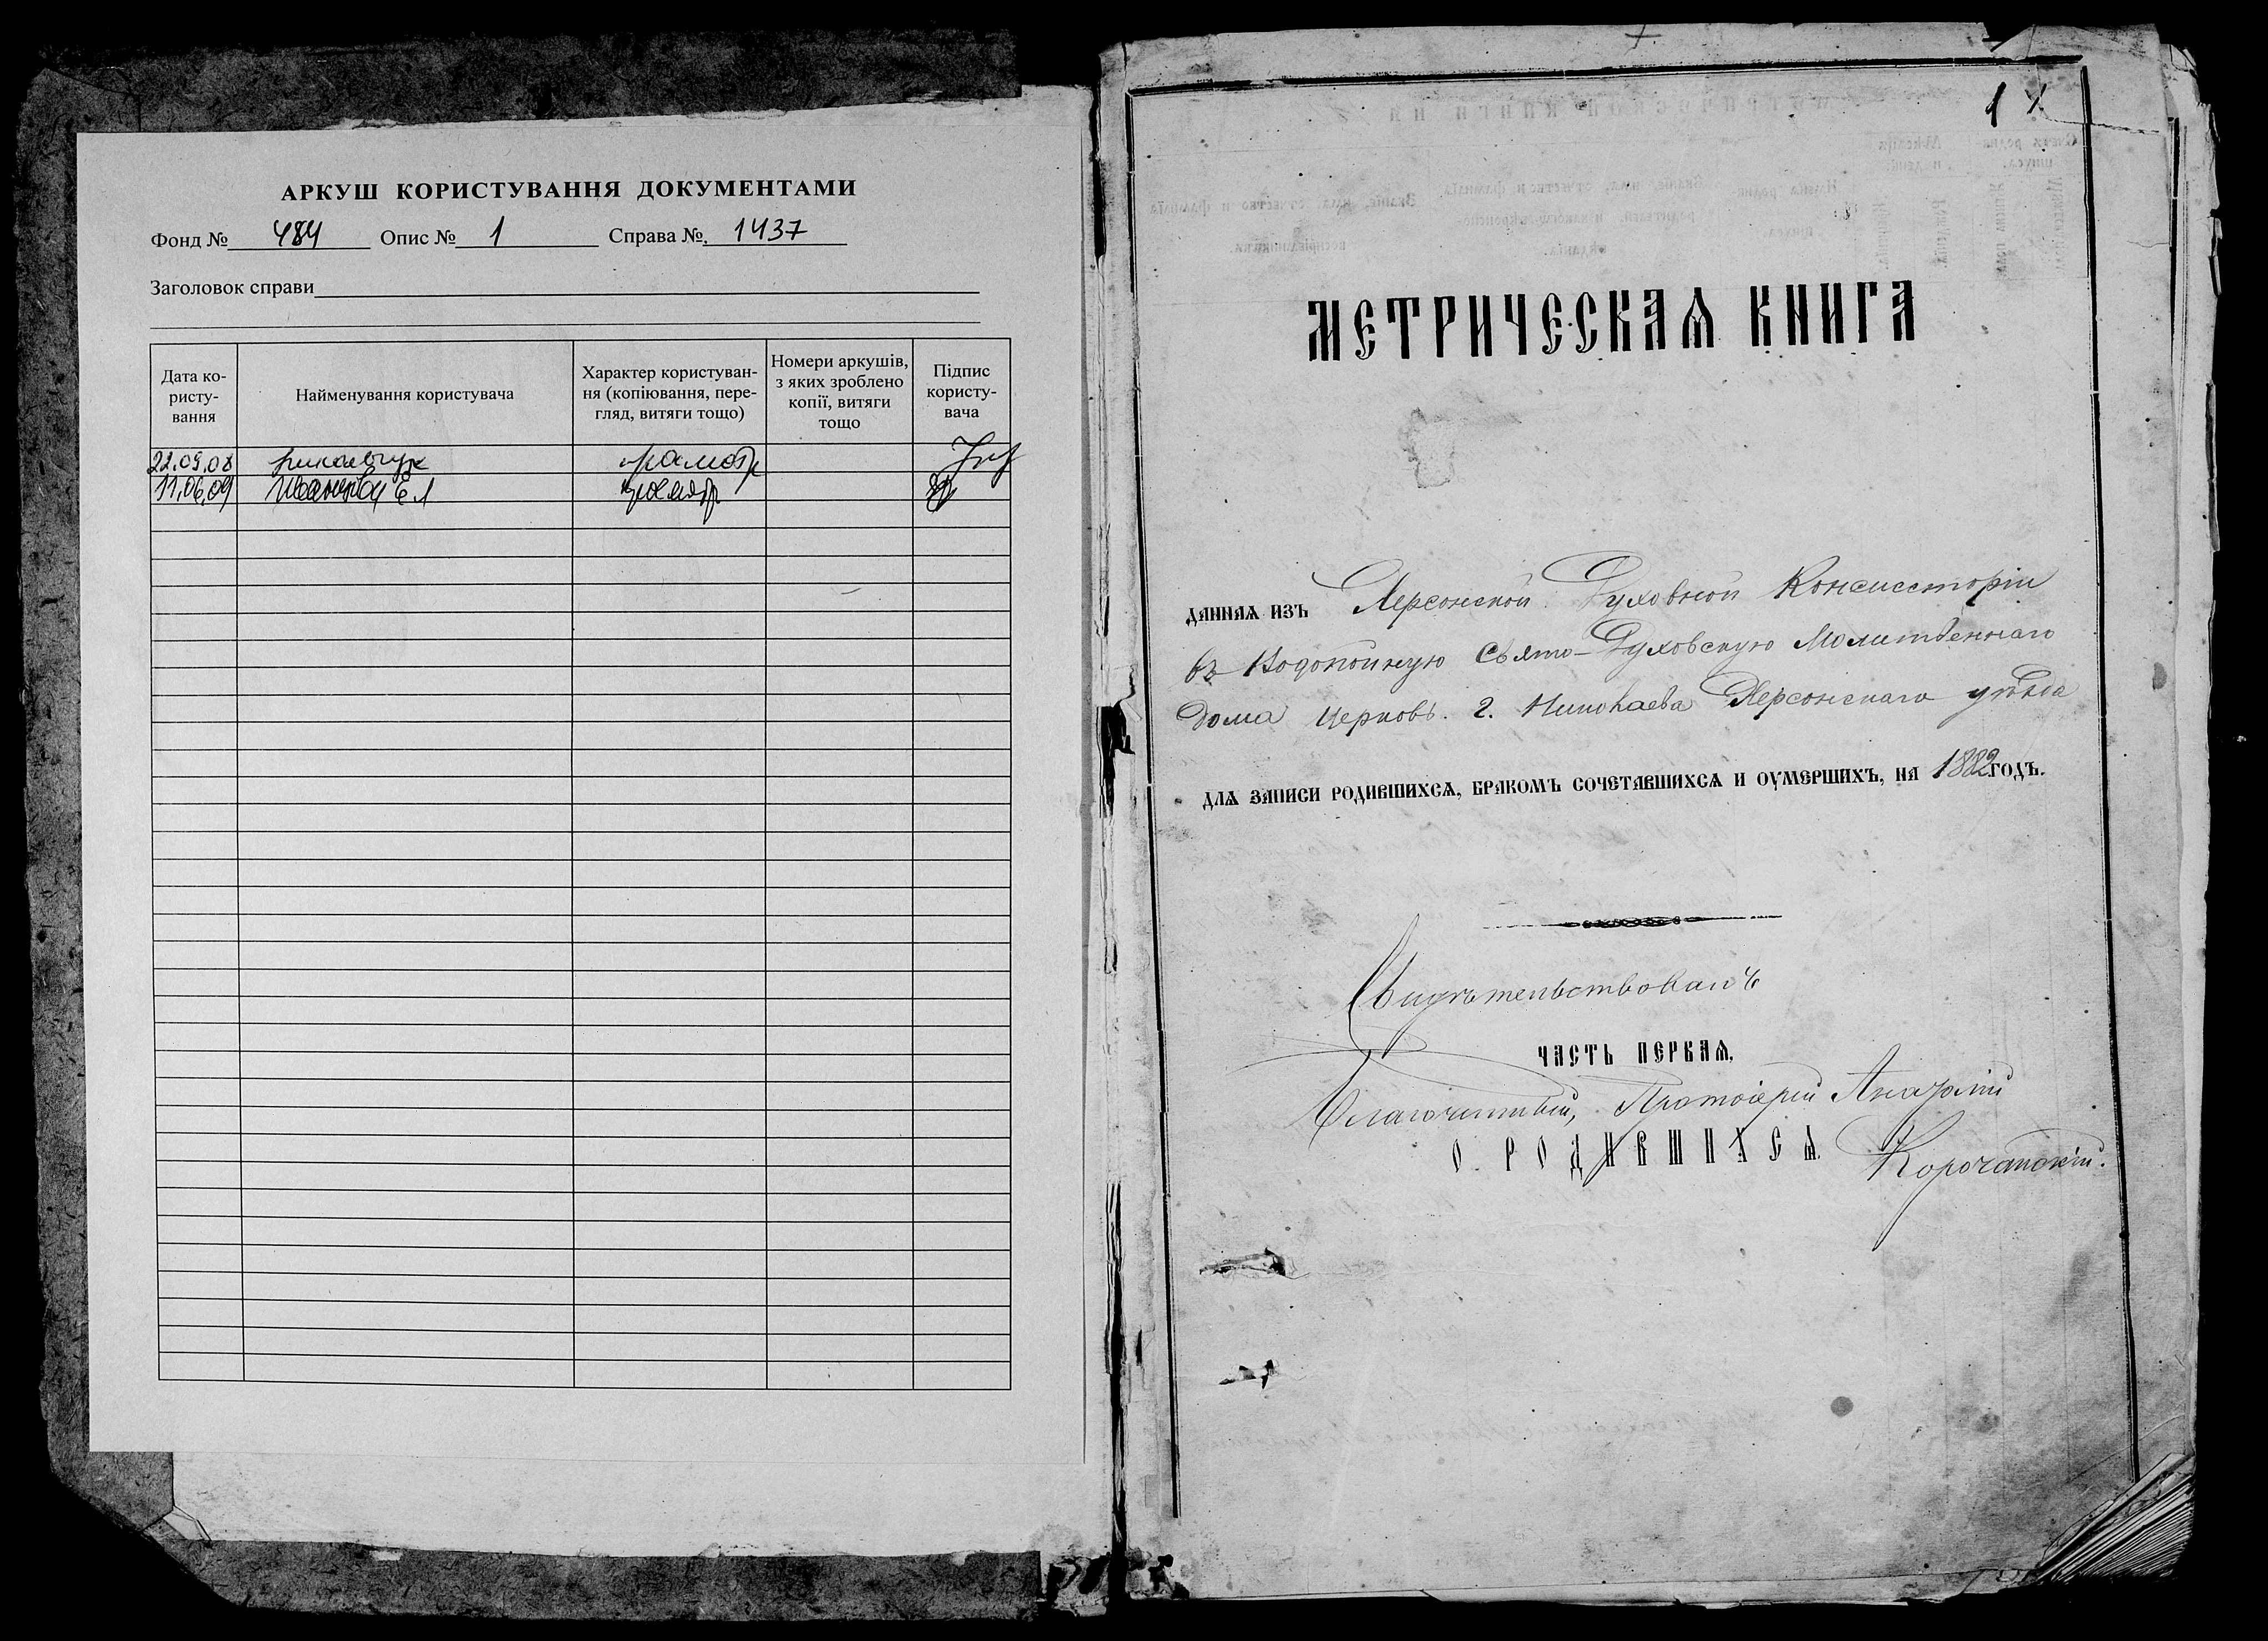 АРКУШ КОРИСТУВАННЯ ДОКУМЕНТАМИ
Фонд № 484 Опис № 1 Справа № 1437
Заголовок справи
Дата ко-
ристу-
вання
Найменування користувача
Характер користуван-
ня (копіювання, пере-
гляд, витяги тощо)
Номери аркушів,
з яких зроблено
копії, витяги
тощо
Підпис
користу-
вача
22.09.08
11.06.09
1
МЕТРИЧЕСКАѦ КНИГА
ДАННАѦ ИЗЪ Херсонской Духовной Консисторіи
въ Водопойную Свято-Духовскую Молитвеннаго
дома Церковь. г. Николаева Херсонскаго уѣзда
ДЛѦ ЗАПИСИ РОДИВШИХСѦ, БРАКОМЪ СОЧЕТАВШИХСѦ И ОУМЕРШИХЪ, НА 1882 ГОДЪ.
Свидѣтельствовалъ
ЧАСТЬ ПЕРВАѦ,
Благочинный, Протоіерей Анатолій
О РОДИВШИХСѦ
Корочанскій.